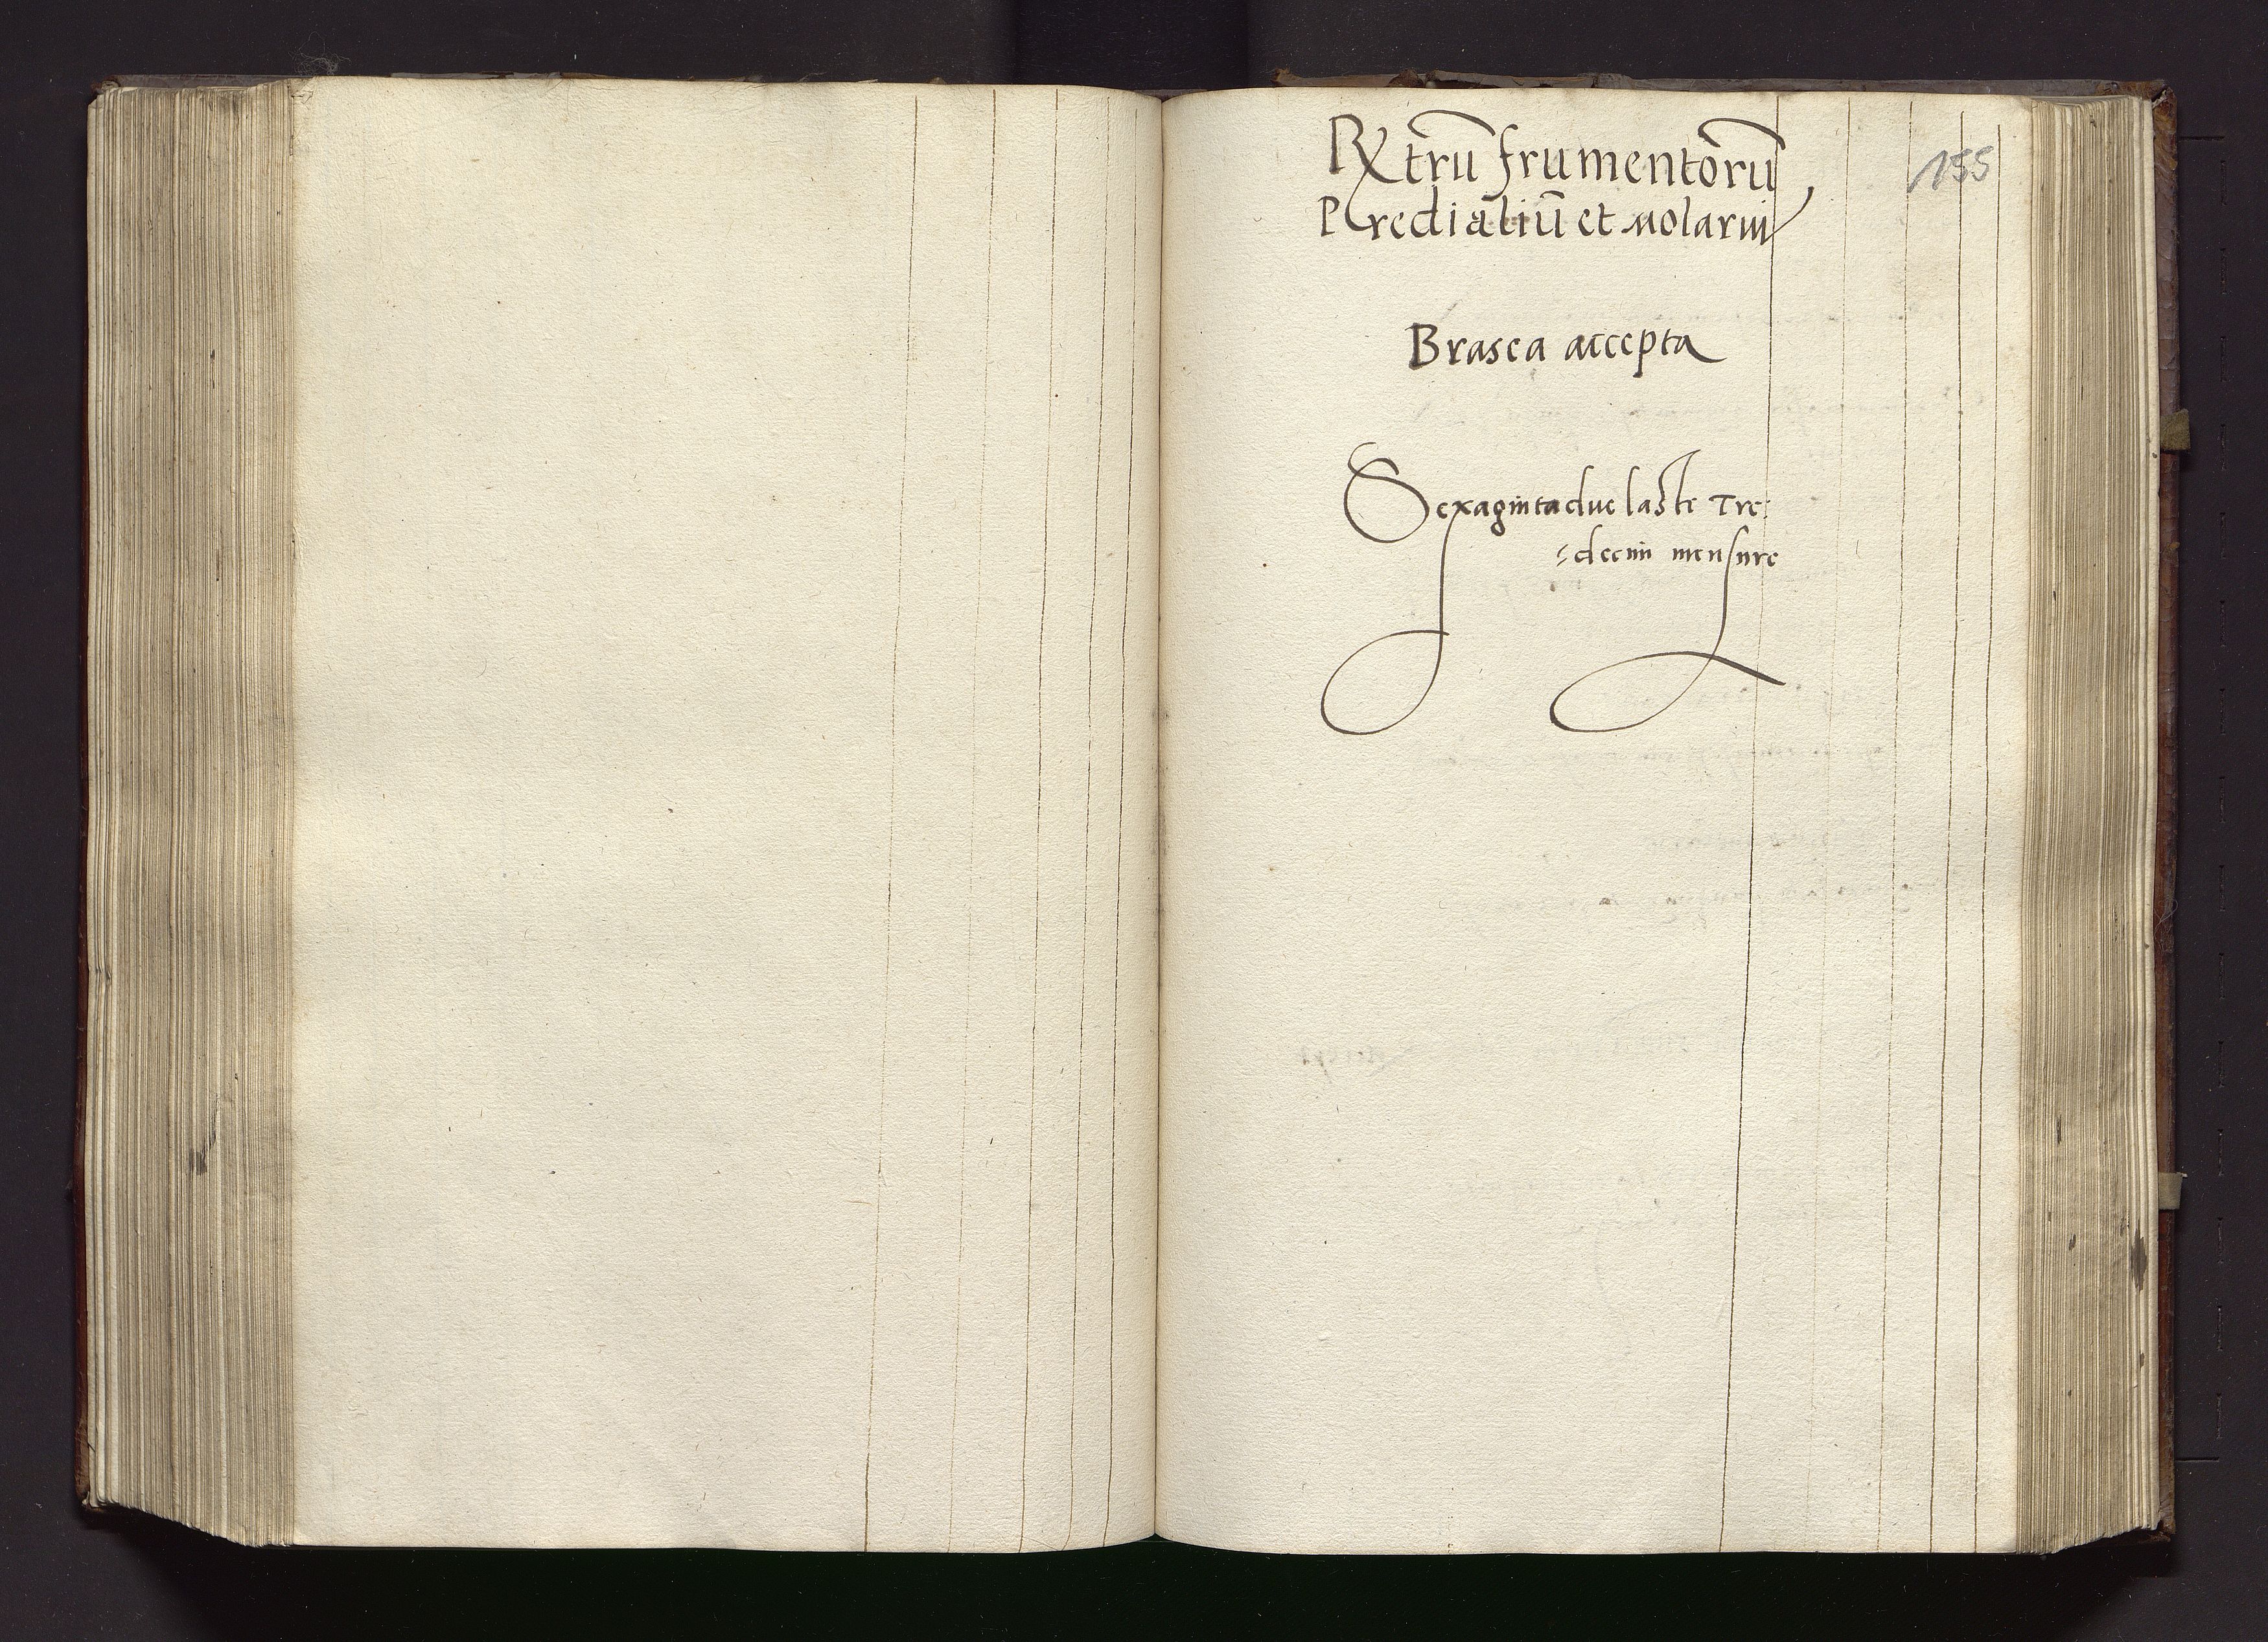 155
Rx̄trū frumentorū
Predialiū et molariū
Brasea accepta
Sexaginta due laste Tre-
-decim mensure